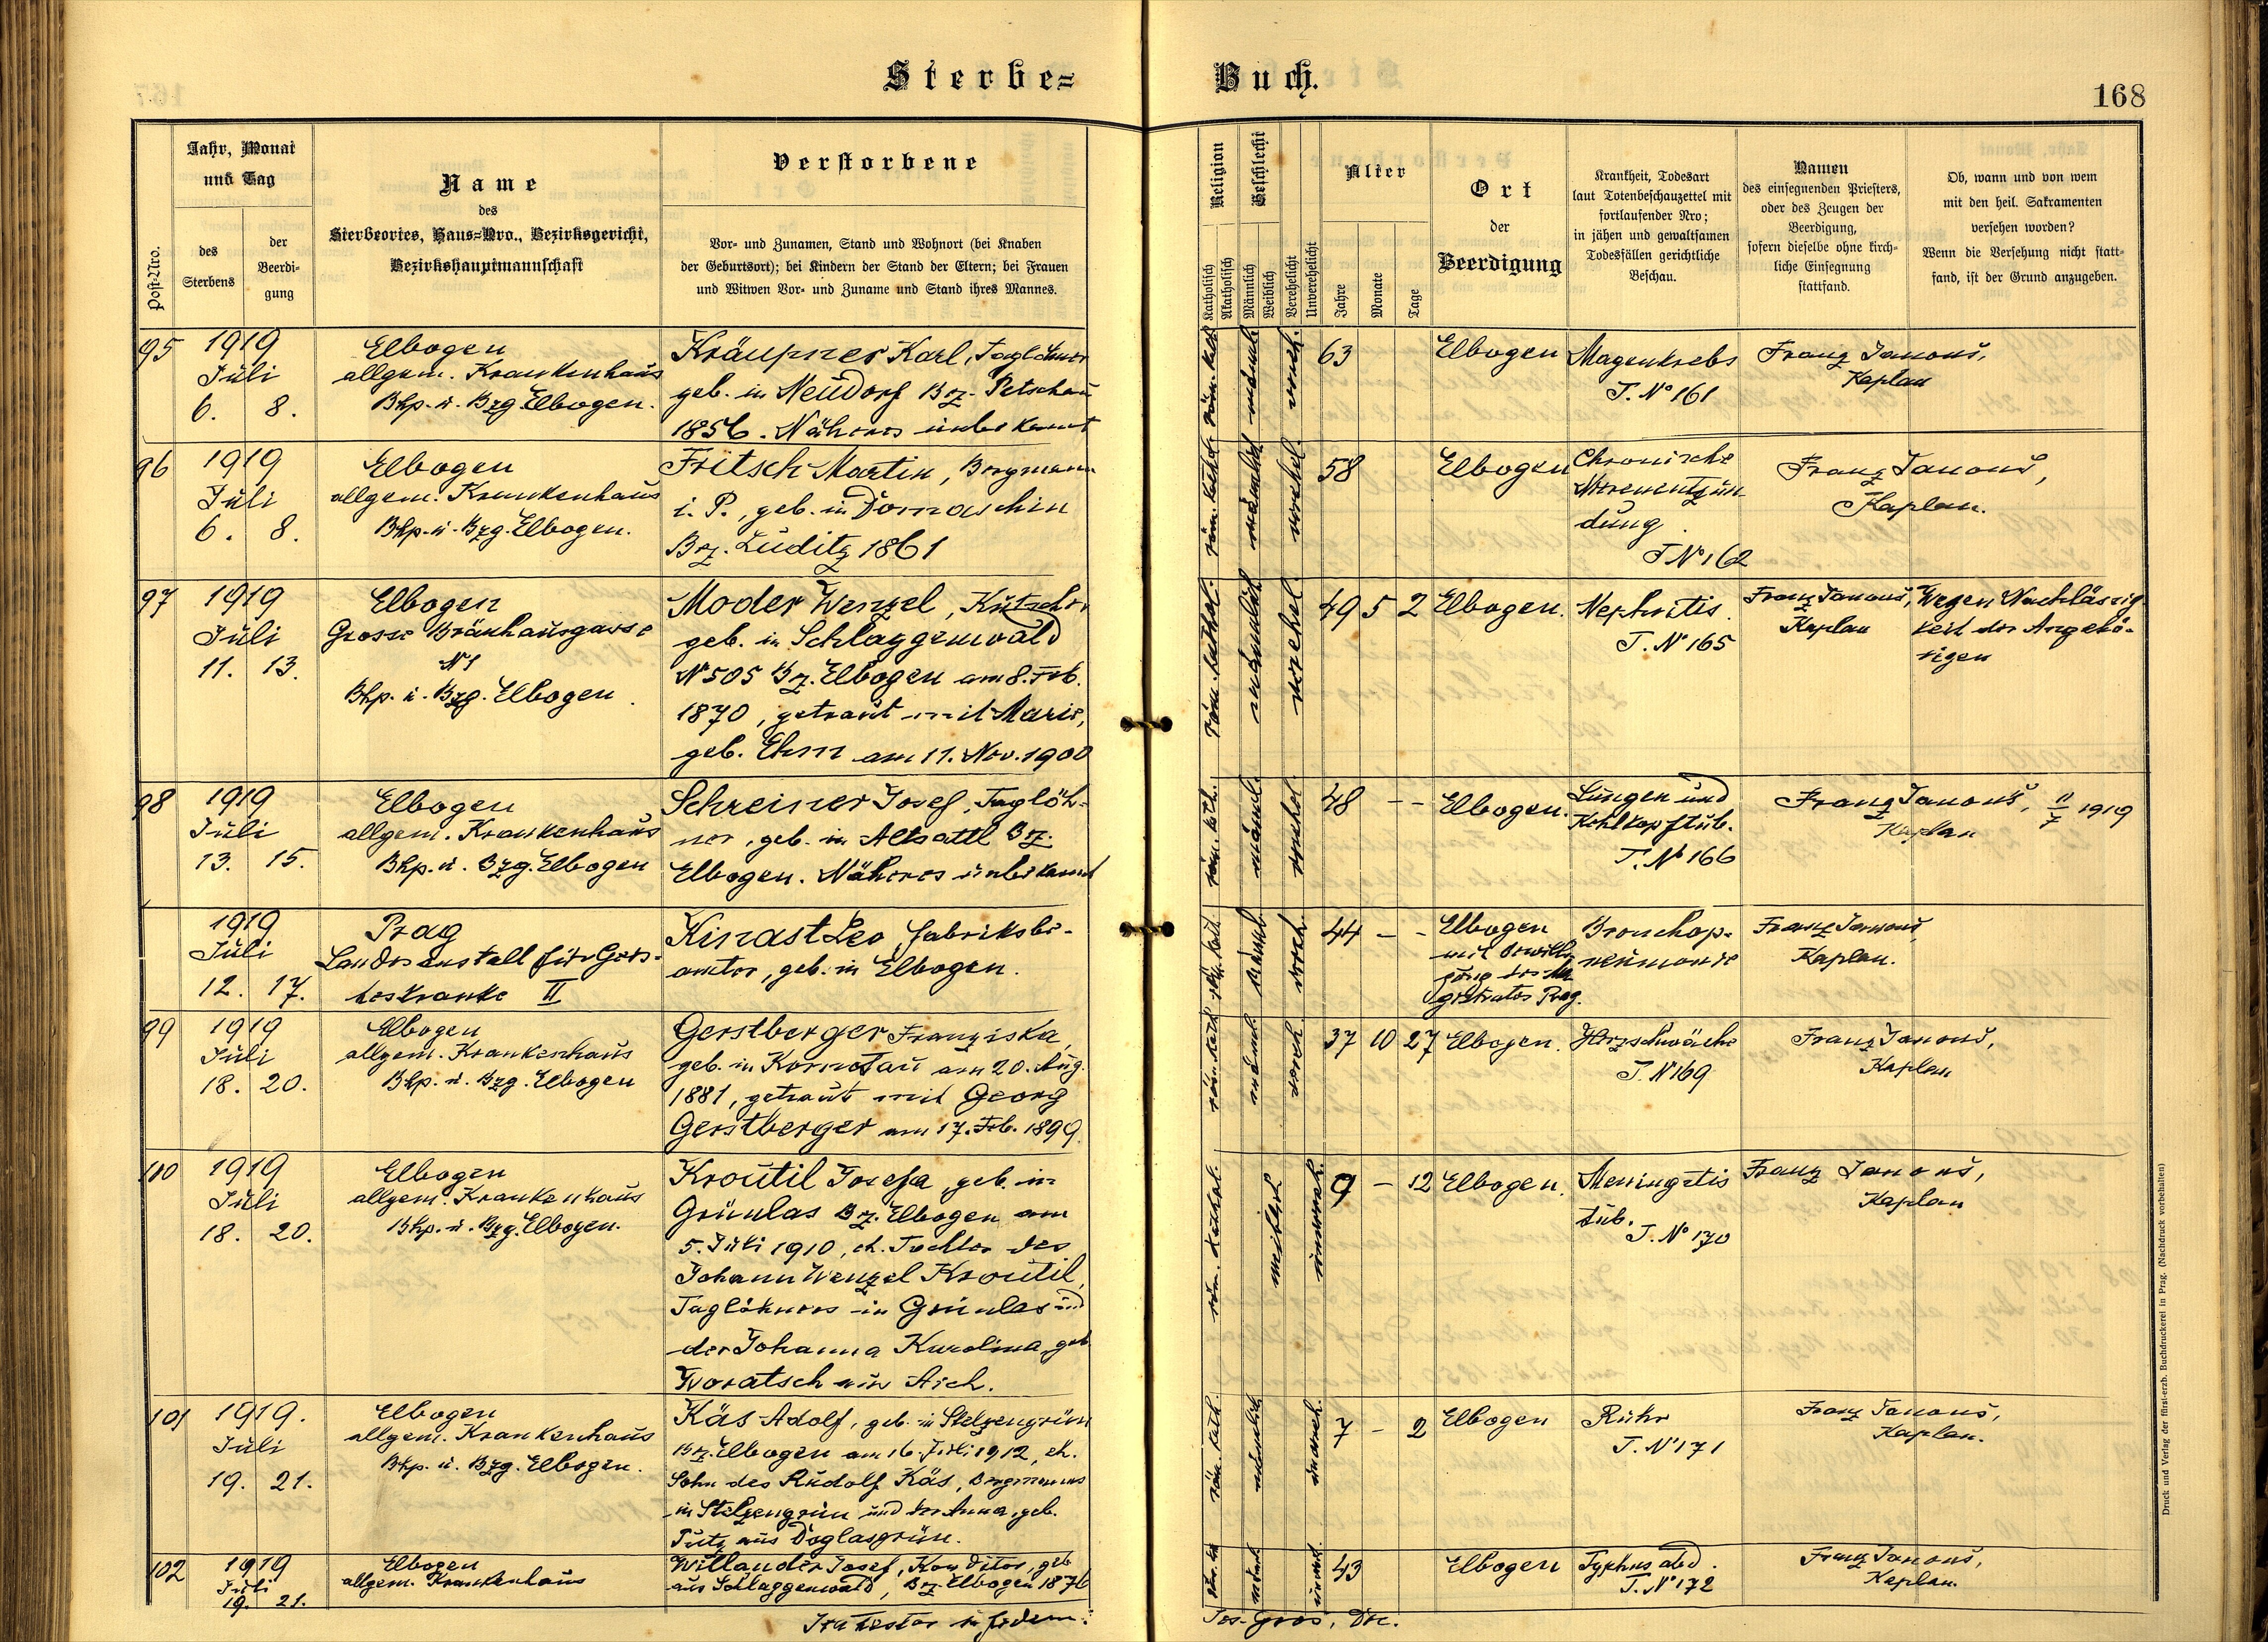 Sterbe=
Buch.
168
Post-Nro.
Jahr, Monat
und Tag
des
Sterbens
der
Beerdi-
gung
Name
des
Sterbeortes, Haus=Nro., Bezirksgericht,
Bezirkshauptmannschaft
Verstorbene
Vor- und Zunamen, Stand und Wohnort (bei Knaben
der Geburtsort); bei Kindern der Stand der Eltern; bei Frauen
und Witwen Vor- und Zuname und Stand ihres Mannes.
Religion
Katholisch
Akatholisch
Geschlecht
Männlich
Weiblich
Verehelicht
Unverehelicht
Alter
Jahre
Monate
Tage
Ort
der
Beerdigung
Krankheit, Todesart
laut Totenbeschauzettel mit
fortlaufender Nro;
in jähen und gewaltsamen
Todesfällen gerichtliche
Beschau.
Namen
des einsegnenden Priesters,
oder des Zeugen der
Beerdigung,
sofern dieselbe ohne kirch-
liche Einsegnung
stattfand.
Ob, wann und von wem
mit den heil. Sakramenten
versehen worden?
Wenn die Versehung nicht statt-
fand, ist der Grund anzugeben.
95
1919
Juli
6. 8.
Elbogen
allgem. Krankenhaus
Bhp. u. Bzg. Elbogen.
Kräupner Karl, Taglöhner
geb. in Neudorf Bz. Petschau
1856. Näheres unbekannt
röm. kath.
männl.
vereh.
63
Elbogen
Magenkrebs
T. No 161
Franz Janouš,
Kaplan
96
1919
Juli
6. 8.
Elbogen
allgem. Krankenhaus
Bhp. u. Bzg. Elbogen.
Fritsch Martin, Bergmann
i. P., geb. in Domaschin
Bz. Luditz 1861
röm. kathol.
männlich
verehel.
58
Elbogen
Chronische
Nierenentzün
dung
T No 162
Franz Janouš,
Kaplan.
97
1919
Juli
11. 13.
Elbogen
Grosse Bräuhausgasse
No 1
Bhp. u. Bzg. Elbogen
Moder Wenzel, Kutscher
geb. in Schlaggenwald
No 505 Bz. Elbogen am 8. Feb.
1870, getraut mit Marie,
geb. Ehm am 11. Nov. 1900
röm. kathol.
männlich
verehel.
49 5 2
Elbogen.
Nephritis
T. No 165
Franz Janouš,
Kaplan
Wegen Nachlässig
keit der Angehö-
rigen
98
1919
Juli
13. 15.
Elbogen
allgem. Krankenhaus
Bhp. u. Bzg. Elbogen
Schreiner Josef, Taglöh-
ner, geb. in Altsattl Bz.
Elbogen. Näheres unbekannt
röm. kath.
männl.
verehel.
48 - -
Elbogen.
Lungen und
Kehlkopftub.
T. No 166
Franz Janouš,
Kaplan
11/7 1919
1919
Juli
12. 17.
Prag
Landesanstalt für Geis-
teskranke II
Kinast Leo Fabriksbe-
amter, geb. in Elbogen.
röm. kath.
männl.
vereh.
44 - -
Elbogen
mit Bewilli
gung des Ma
gistrates Prag.
Bronchop-
neumonie
Franz Janouš,
Kaplan.
99
1919
Juli
18. 20.
Elbogen
allgem. Krankenhaus
Bhp. u. Bzg. Elbogen
Gerstberger Franziska,
geb. in Komotau am 20. Aug.
1881, getraut mit Georg
Gerstberger am 17. Feb. 1899.
röm. kath.
männl.
vereh.
37 10 27
Elbogen.
Herzschwäche
T. No 169
Franz Janouš,
Kaplan
100
1919
Juli
18. 20.
Elbogen
allgem. Krankenhaus
Bhp. u. Bzg. Elbogen.
Kroutil Josefa, geb. in
Grünlas Bz. Elbogen am
5. Juli 1910, eh. Tochter des
Johann Wenzel Kroutil,
Taglöhners in Grünlas und
der Johanna Karolina, geb.
Woratsch aus Aich.
röm. kathol.
weiblich
unvereh.
9 - 12
Elbogen.
Meningitis
tub.
T. No 170
Franz Janouš,
Kaplan
101
1919.
Juli
19. 21.
Elbogen
allgem. Krankenhaus
Bhp. u. Bzg. Elbogen.
Käs Adolf, geb. in Stelzengrün
Bz. Elbogen am 16. Juli 1912, eh.
Sohn des Rudolf Käs, Bergmanns
in Stelzengrün und der Anna, geb.
aus Doglasgrün.
röm. kath.
männlich
unvereh.
7 - 2
Elbogen
Ruhr
T. No 171
Franz Janouš,
Kaplan.
102
1919
Juli
19. 21.
Elbogen
allgem. Krankenhaus
Willander Josef, Konditor, geb.
aus Schlaggenwald, Bz. Elbogen 1876
männl.
43
Elbogen
Typhus abd.
T. No 172
Franz Janouš,
Kaplan.
Ita testor in fidem:
Jos. Gros, Dec.
Druck und Verlag der fürst-erzb. Buchdruckerei in Prag. (Nachdruck vorbehalten)